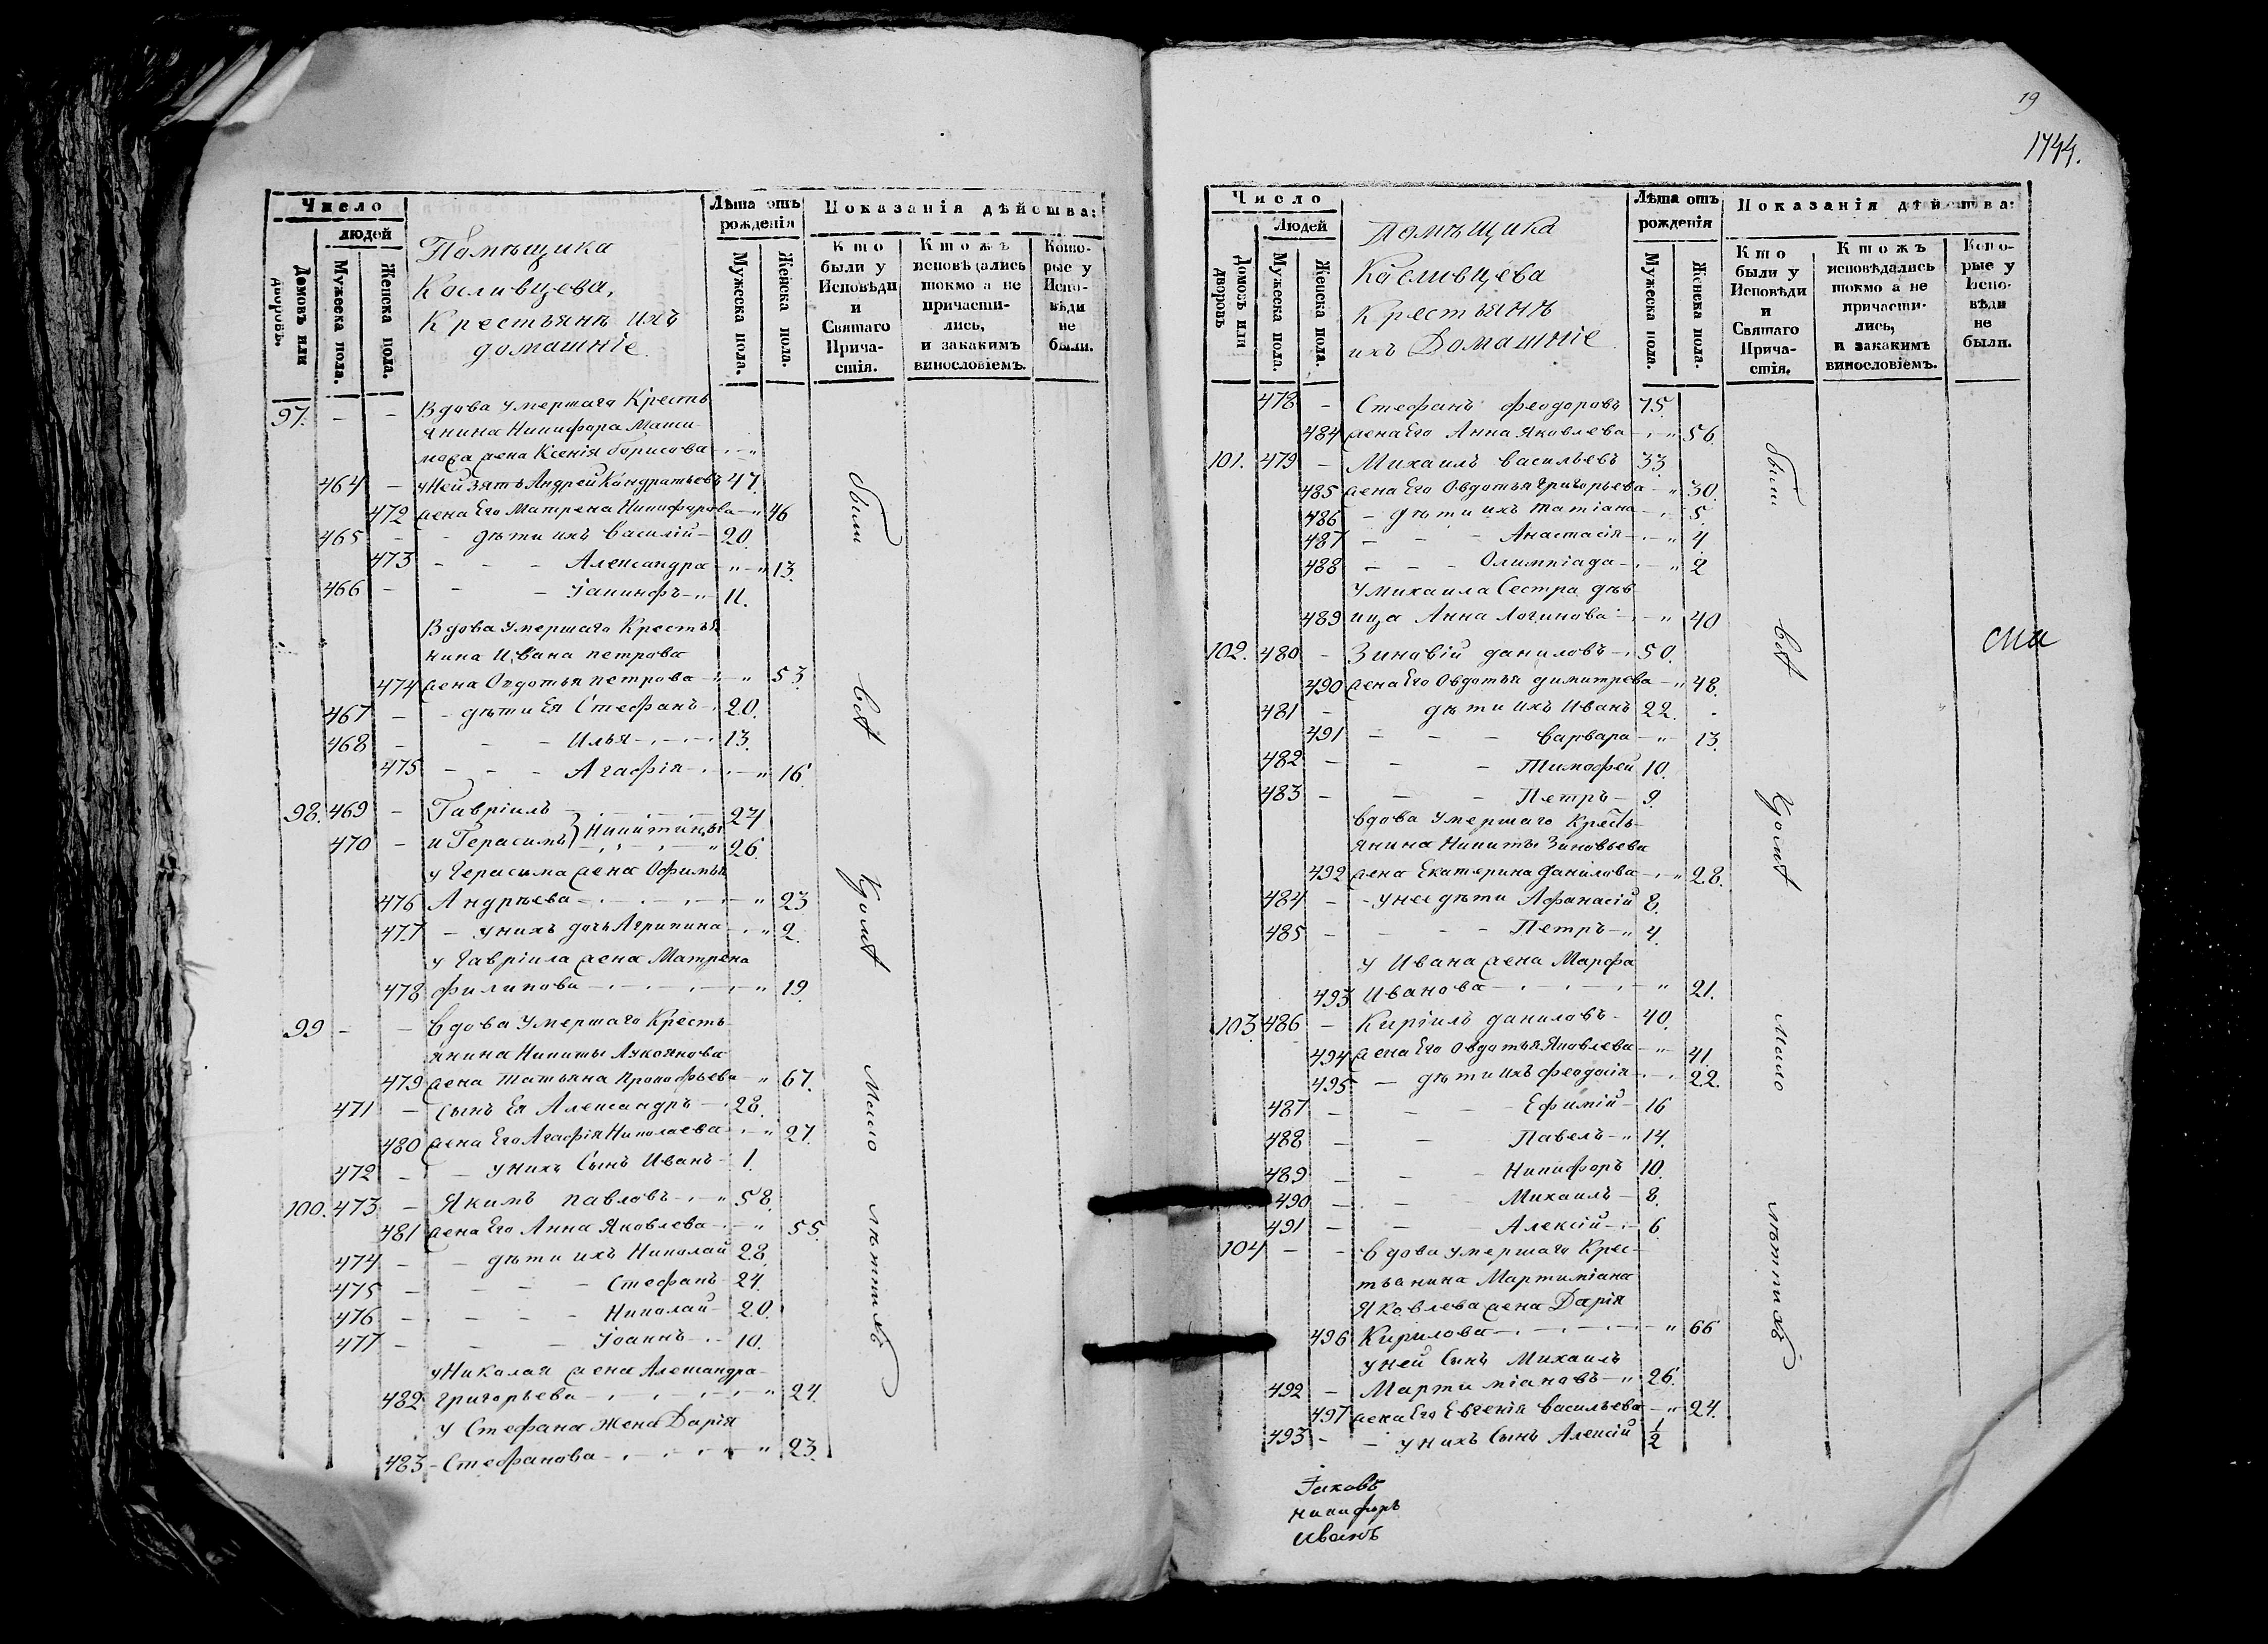 Число
людей
Домовъ или дворовъ.
Мужеска пола.
Женска пола.
Помѣщика
Косливцева,
Крестьянѣ ихъ
домашніе
Лѣта отъ рожденія
Мужеска пола.
Женска пола.
Показанія дѣйства:
Кто были у Исповѣди и Святаго Причастія.
Ктожъ исповѣдались токмо а не причастились, и закакимъ винословіемъ.
Которые у Исповѣди не были.
97. - - Вдова умершаго Кресть
янина Никифора
жена Ксенія борисова
464 - у Ней зять Андрей Кондратьевъ 47.
472 жена Его Матрена Никифорова 46
465 - - дѣти ихъ Василий 20.
473 - - - Александра 13.
466 - - - Іакинфъ 11.
Вдова умершаго Крестья
нина Ивана петрова
474 жена Овдотья петрова 53.
467 - - дѣти Ея Стефанъ 20.
468 - - - Илья 13.
475 - - - Агафія 16.
98. 469 - Гавріилъ 24
470 - и Герасимъ } Никитины 26.
у Герасима жена Офимья
476 Андрѣева 23
477 - унихъ дочь Агрипина 2.
у Гавріила жена Матрена
478 филипова 19.
99 - - Вдова умершаго Кресть
янина Никиты Лукоянова
479 жена татьяна Прокофьева 67.
471 - Сынъ Ея Александръ 28.
480 жена Его Агафія Николаева 27.
472 - - унихъ Сынъ Иванъ 1.
100. 473 - Якимъ павловъ 58.
481 жена Его Анна Яковлева 55.
474 - - дѣти ихъ Николай 28.
475 - - - Стефанъ 24.
476 - - - Николай 20.
477 - - - Іоаннъ 10.
у Николая жена Александра
482 григорьева 24.
у Стефана жена Дарія
483 - Стефанова 23.
были
всѣ
кромѣ
мало
лѣтнихъ
19
1744.
Число
Людей
Домовъ или дворовъ
Мужеска пола
Женска пола.
Помѣщика
Косливцева
Крестьянѣ
ихъ Домашніе
Лѣта отъ рожденія
Мужеска пола.
Женска пола.
Показанія дѣйства:
Кто были у Исповѣди и Святаго Причастія.
Ктожъ исповѣдались токмо а не причастились, и закакимъ винословіемъ.
Которые у Исповѣди не были.
478 - Стефанъ феодоровъ 75.
484 жена Его Анна Яковлева 56.
101. 479 - Михаилъ васильевъ 33
485 жена Его Овдотья Григорьева 30.
486 - дѣти ихъ татіана 5.
487 - - - Анастасія 4.
488 - - - Олимпіада 2
у михаила Сестра дѣв
489 ица Анна Логинова 40
102. 480 - Зиновій даниловъ 50.
490 жена Его Овдотья димитрева 48.
481 - дѣти ихъ Иванъ 22.
491 - - - варвара 13.
482 - - - Тимофей 10.
483 - - - Петръ 9.
вдова умершаго Кресть
янина Никиты Зиновьева
492 жена Екатерина данилова 28.
484 - - унее дѣти Афанасій 8.
485 - - - Петръ 4.
у Ивана жена Марфа
493 Иванова 21.
103. 486 - Кирилъ даниловъ 40.
494 жена Его Овдотья Яковлева 41.
495 - дѣти ихъ феодосія 22.
487 - - - Ефимій 16
488 - - Павелъ 14.
489 - - - Никифоръ 10.
490 - - - Михаилъ 8.
491 - - - Алексій 6
104 - - вдова умершаго Крес-
тьянина Мартиміана
Яковлева жена Дарія
496 Кирилова 66
уней Сынъ Михаилъ
492 - Мартиміановъ 26.
497 жена Его Евгенія васильева 24.
493 - - унихъ Сынъ Алексій 1/2
были
всѣ
кромѣ
мало
лѣтнихъ
Іаковъ
никифоръ
Иванъ